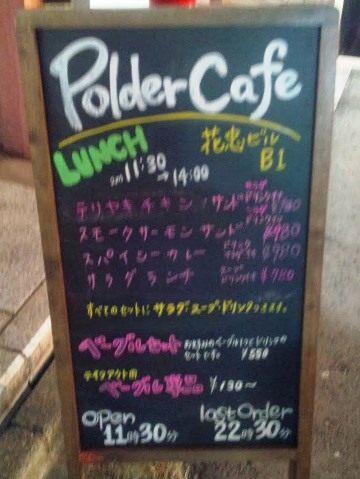 Polder Cafe
LUNCH
花忠ビル
B1
am 11:30 → 14:00
テリヤキチキン サンド サラダ ドリンク付
スモークサーモンサンド ¥980
スパイシーカレー ドリンク ¥980
サラダランチ スープ ¥780
すべてのセットに サラダ・スープ・ドリンク
ベーグルセット
セットです。 ¥550
テイクアウト用
ベーグル単品 ¥130～
open last order
11時30分 22時30分